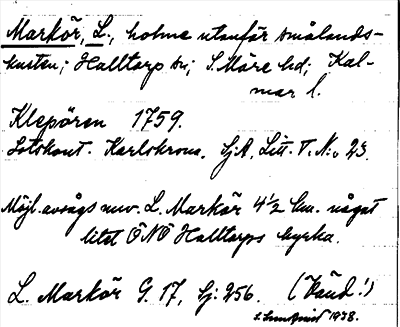 Markör, L., holme utanför smålands-
kusten; Halltorp sn; S. Möre hd; Kal-
mar l.
Klepören 1759.
Lotskont. Karlskrona. Sj.A. Litt. T. N:o 23.
Möjl. avsågs nuv. L. Markör 4 1/2 km. något
litet ÖNÖ Halltorps kyrka.
L. Markör G. 17, Sj: 256. (Känd!)
1938.